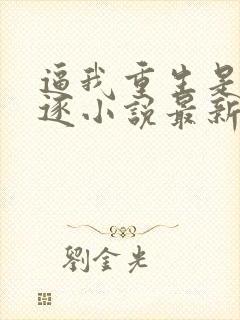 逼我重生是
逐小說最新
劉金光